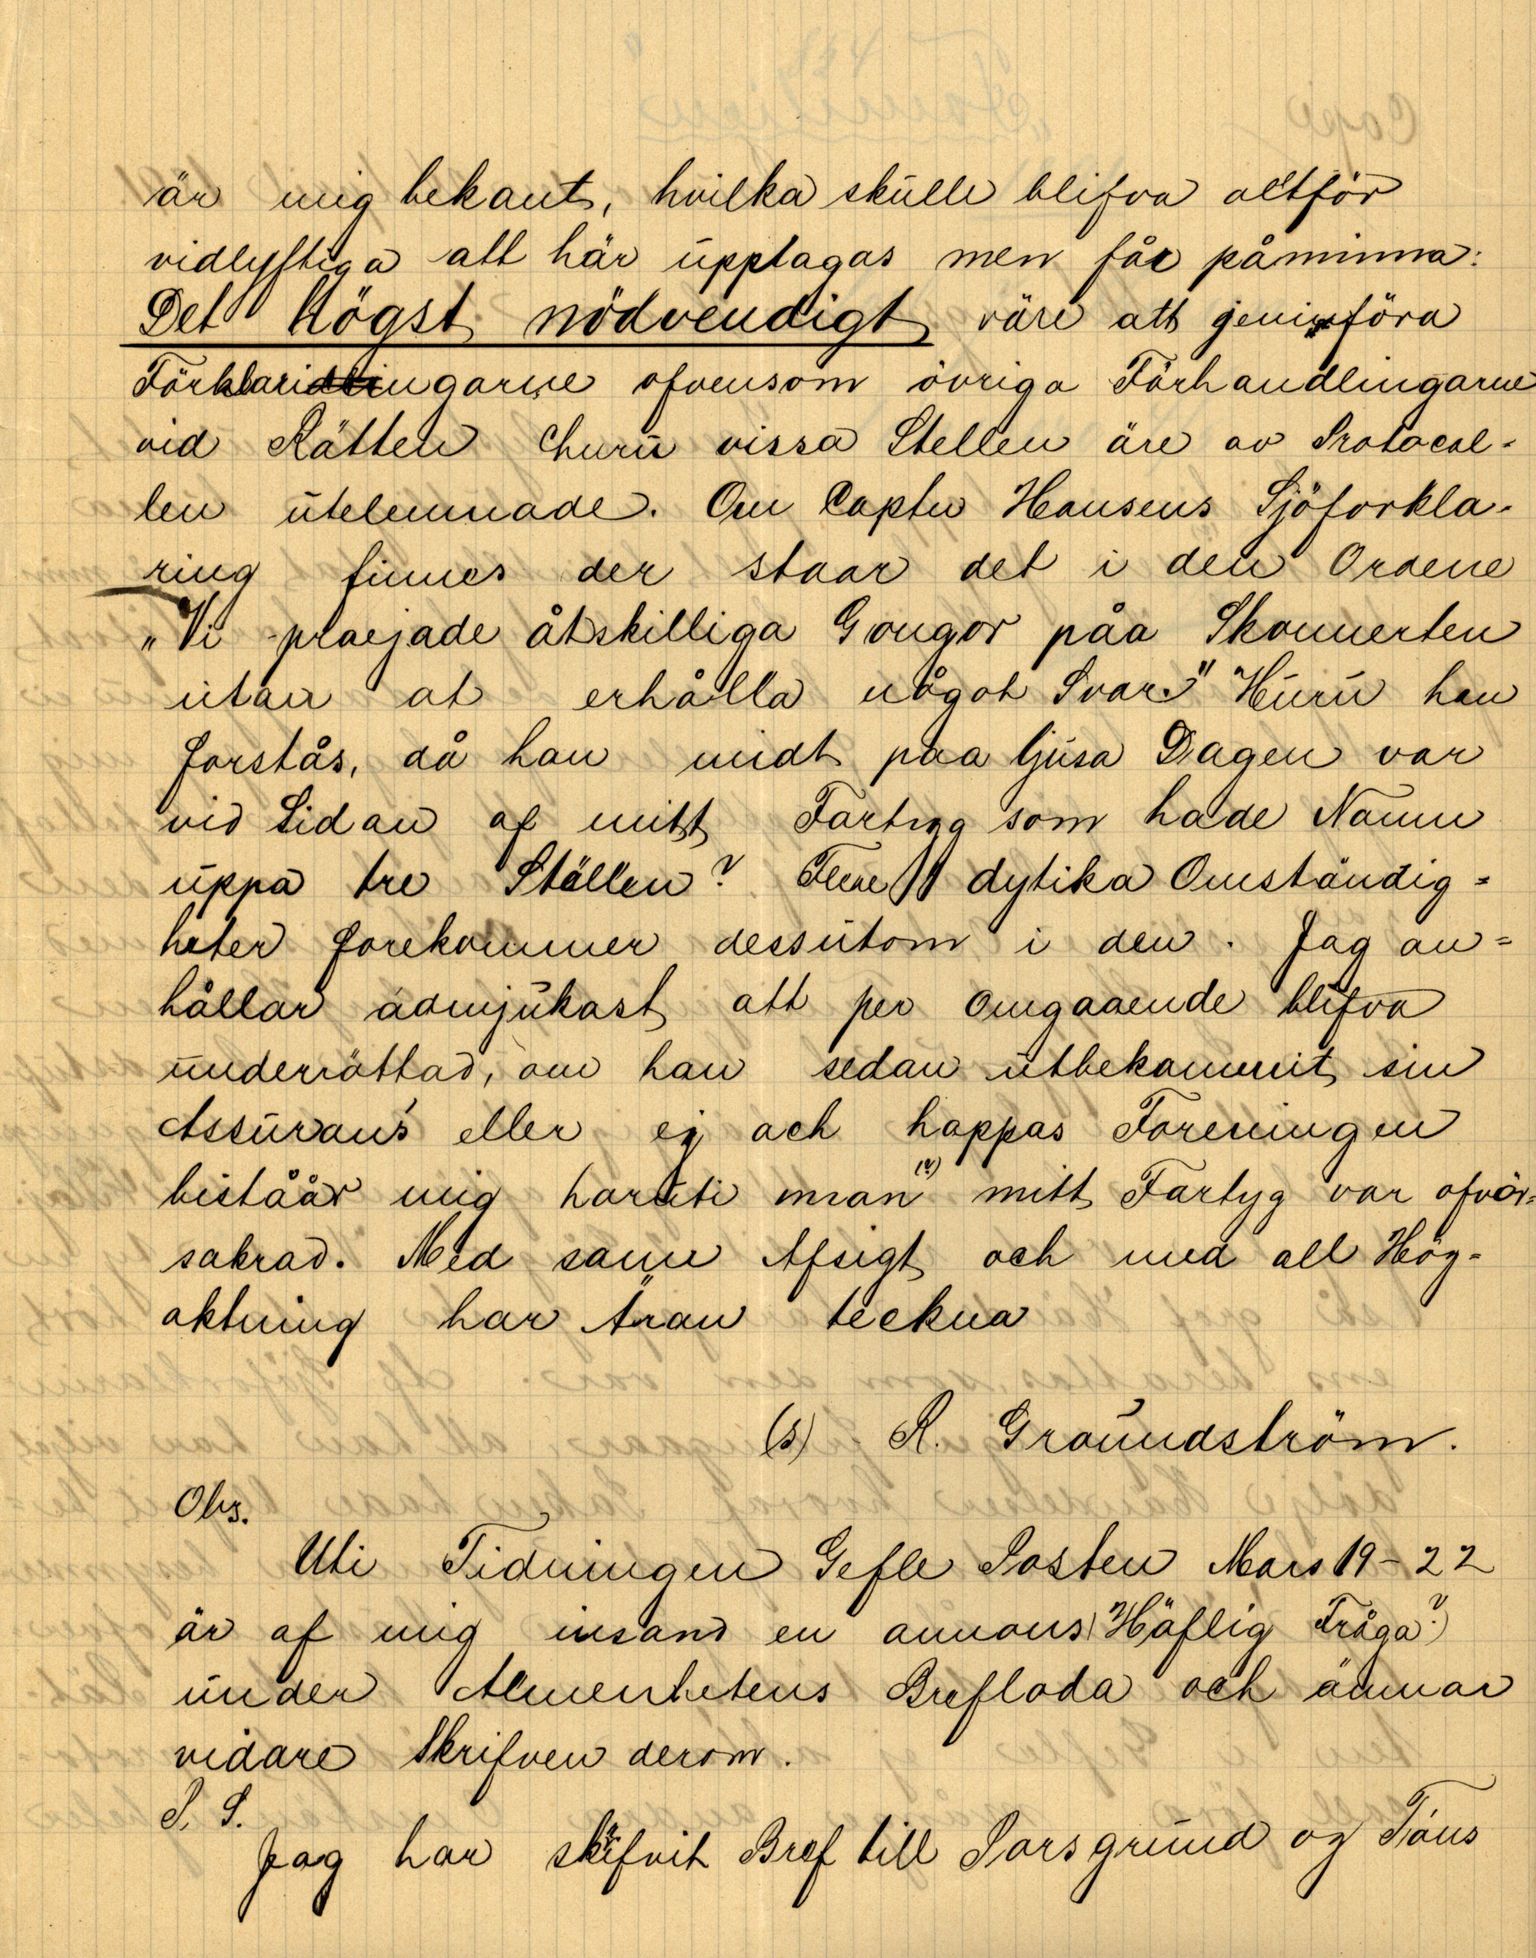 är mig bekant, hvilka skulle blifva altför
vidlyftiga att här upptagas men får påminna:
Det högst nödvendigt väre att jemnföra
Förklaringarne ofvensom övriga Förhandlingarne
vid Rätten churu vissa Stellen äre av Protocol-
len utelemnade. Om Captn Hansens Sjöforkla-
ring finnes der staar det i den Ordene
"Vi praejade åtskilliga Gongor påa Skonnerten
utan at erhålla något Svar." Huru han
forstås, då han midt paa ljusa Dagen var
vid Sidan af mitt Fartyg som hade Namn
uppa tre Ställen? Flere dylika Omständig=
heter forekommer dessutom i den. Jag an=
hållar ödmjukast att per omgaaende blifva
underrättad, om han sedan utbekommit sin
Assurans eller ej och hoppas Foreningen
biståår mig haruti man (?) mitt Fartyg var ofvör=
sakrad. Med same Afsigt och med all Hög-
aktning har Äran teckna
(s) R. Groundström.
Obs.
Uti Tidningen Gefle Posten Mars 19-22
är af mig insand en annons (Höflig Fråga?)
under Almenhetens Brefloda och ämnar
vidare Skrifven derom.
P. S.
Jag har skrifvit Bref till Porsgrund og Töns